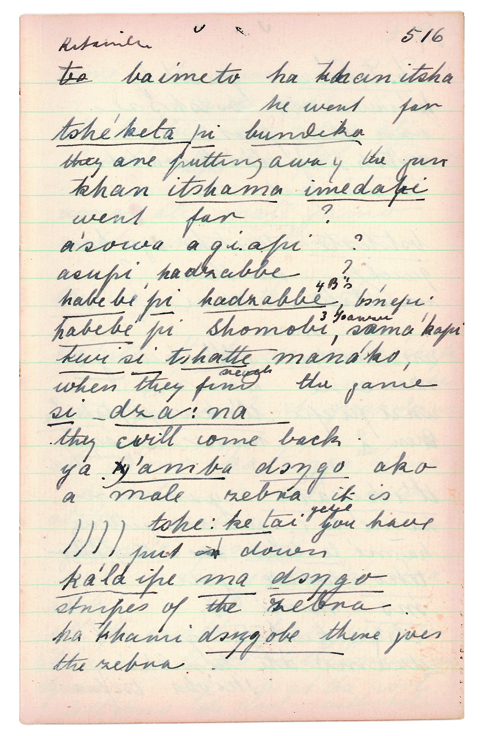 516
to baimeto ha khanitsha
he went far
tshéketa pi bundiko
they are putting away the gun
khan itshama imedapi
went far ?
ásowa agiapi ?
asupi hadzabbe ?
4 B's
habebé pi hadzabbe, bónepi
habebé pi Shomobi, sámá kapi
kwi si tshatte manáko,
when they find the game
si dza:na
they will come back.
ya y'amba dsygo ako
a male zebra it is
tohe:ke tai you have
)))) put down
kála ipe ma dsygo
stripes of the zebra
ha khami dsygobe there goes
the zebra